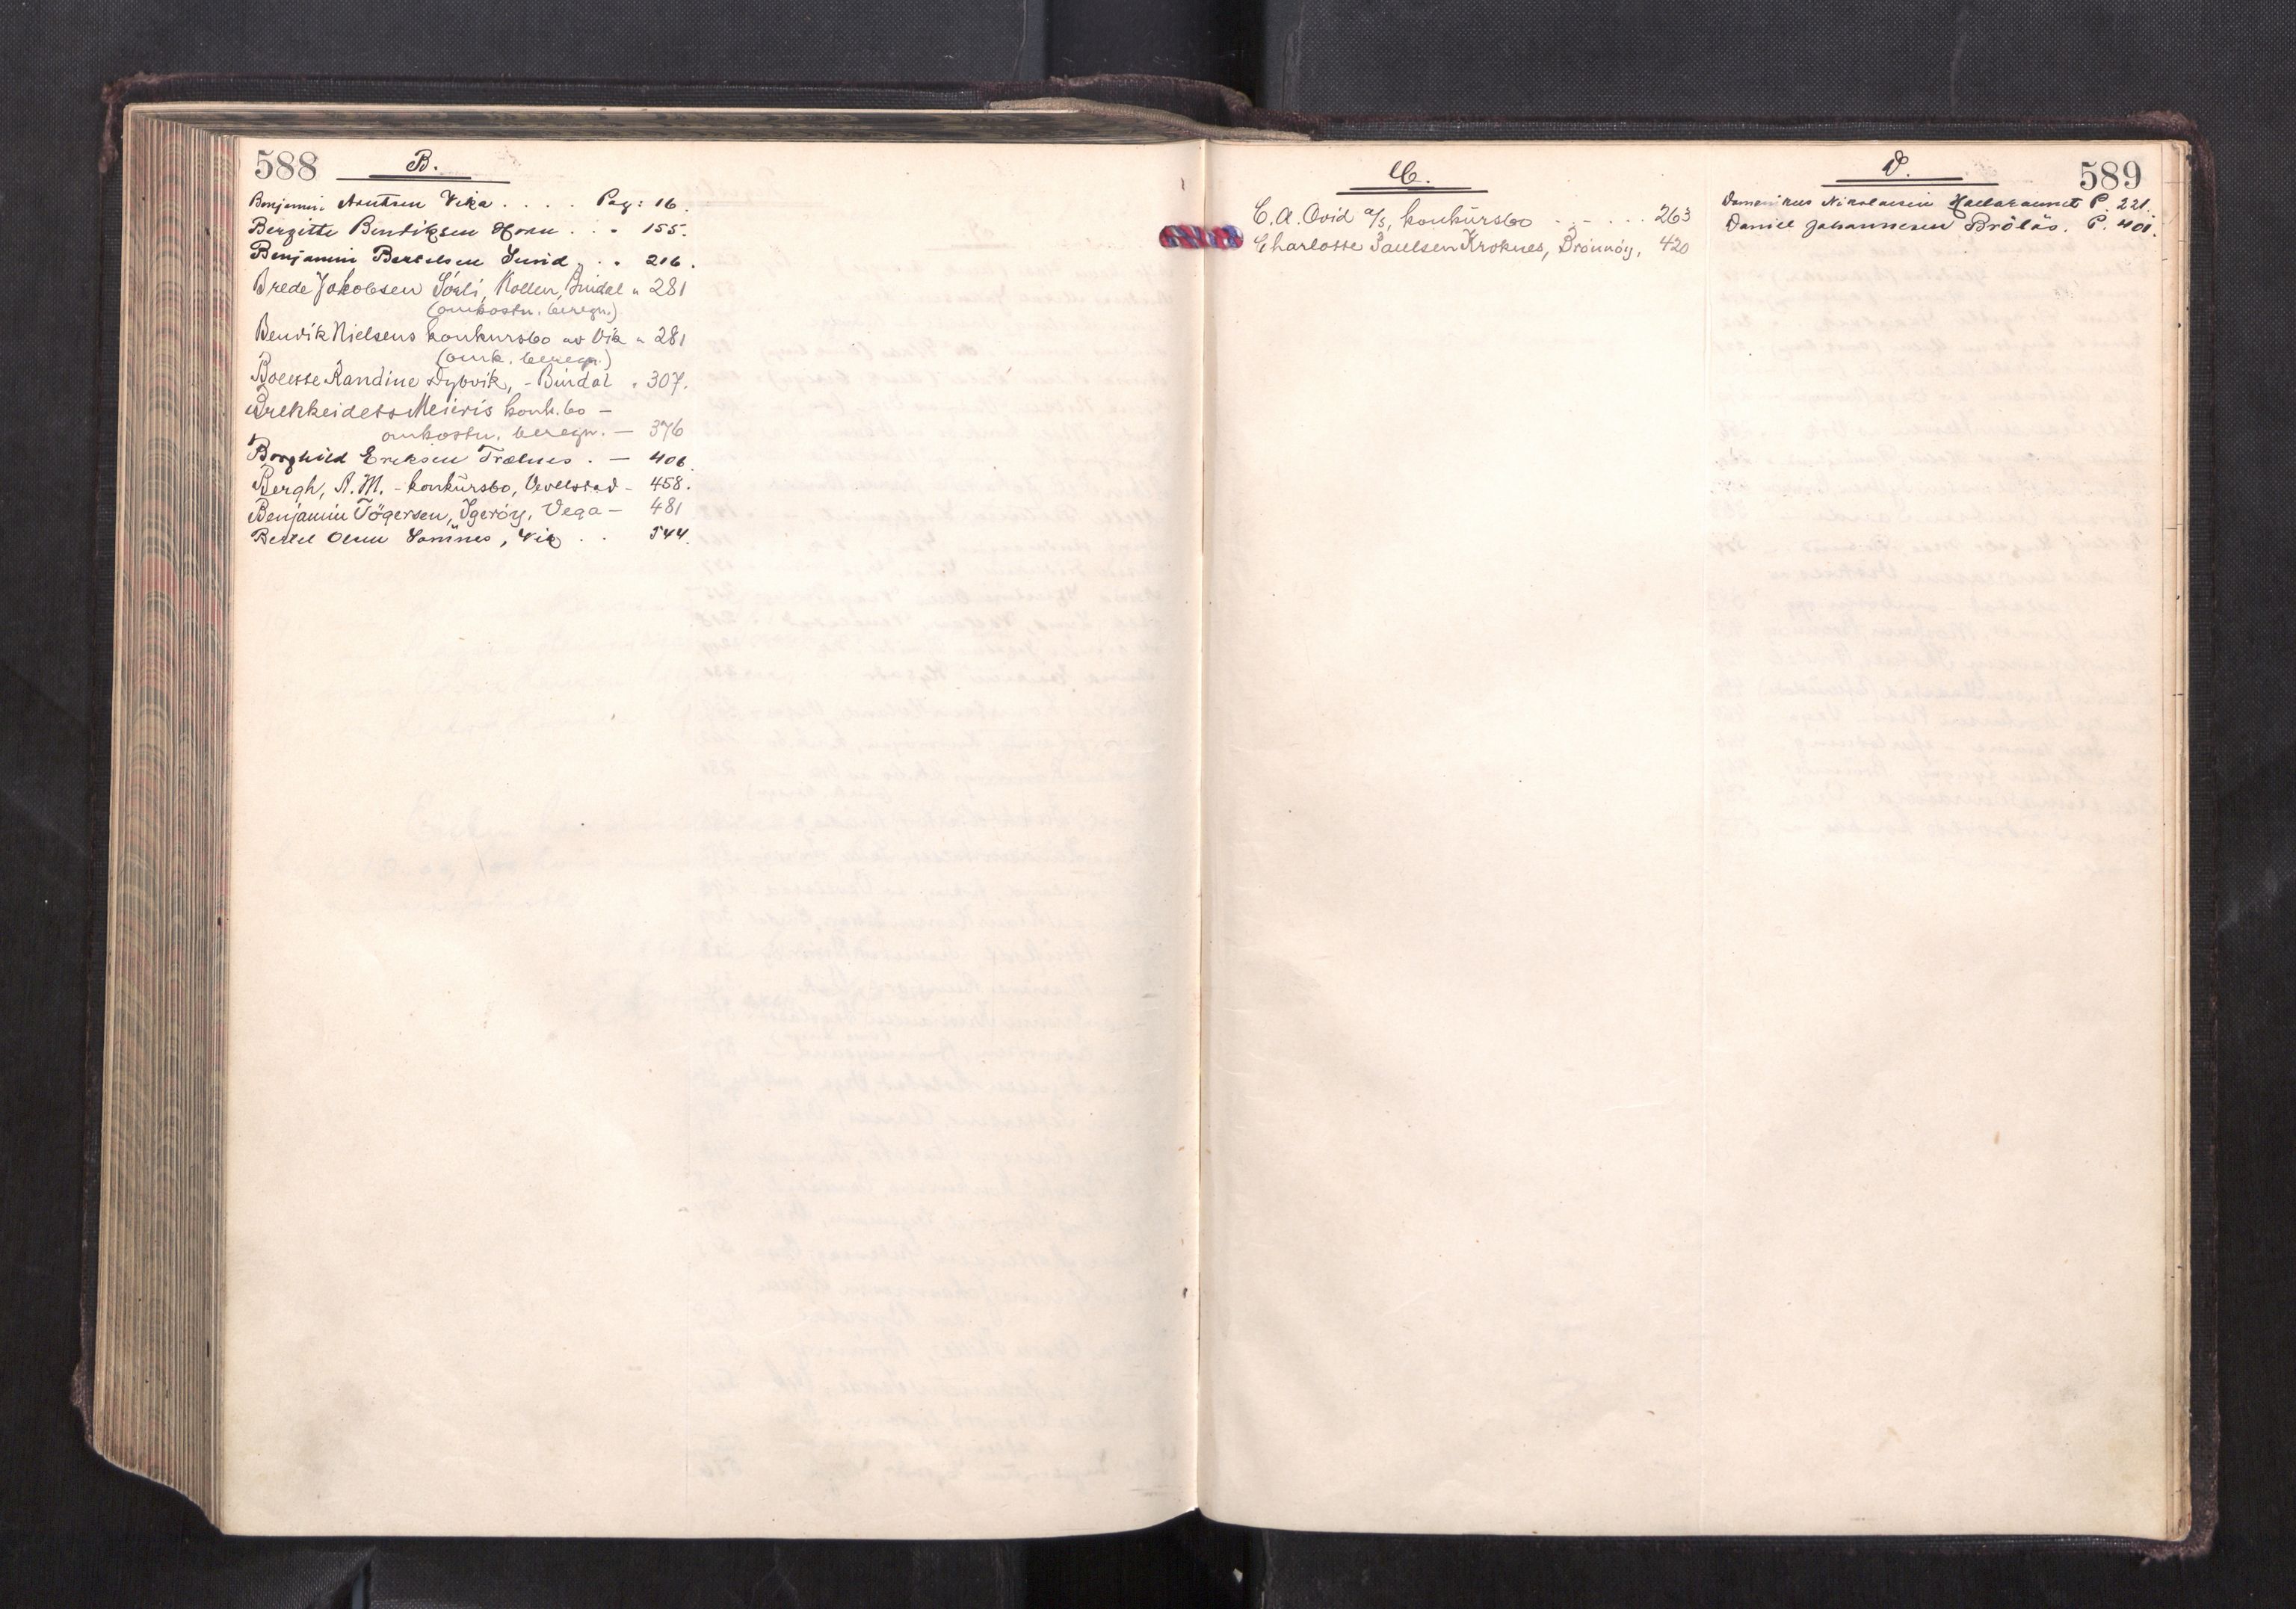 588
B.
Benjamin Arntsen Vika . . . . Pag: 16.
Bergitte Bendiksen Horn . . - 155.
Benjamin Bertelsen Sund „ . . 216.
Brede Jakobsen Sörli, Kollen, Bindal „ 281
(omkostn. beregn.)
Bendik Nielsens konkursbo av Vik „ 281
(omk. beregn.)
Bolette Randine Dybvik, - Bindal „ 307.
Brekkeidets Meieris konk.bo -
omkostn. beregn. — 376
Borghild Eriksen Trælnes . — 406.
Bergh, A. M. - konkürsbo, Vevelstad - 458.
Benjamin Tögersen, Igeröy, Vega — 481
Bertel Olsen Sömnes, Vik . . 544.
589
C.
C. A. Qvid a/s, konkürsbo . . - . . . 263
Charlotte Paulsen Kroknes, Brönnöy, 420
D.
Domenikus Nikolaisen P. 221.
Daniel Johannesen Bröläs. P. 401.